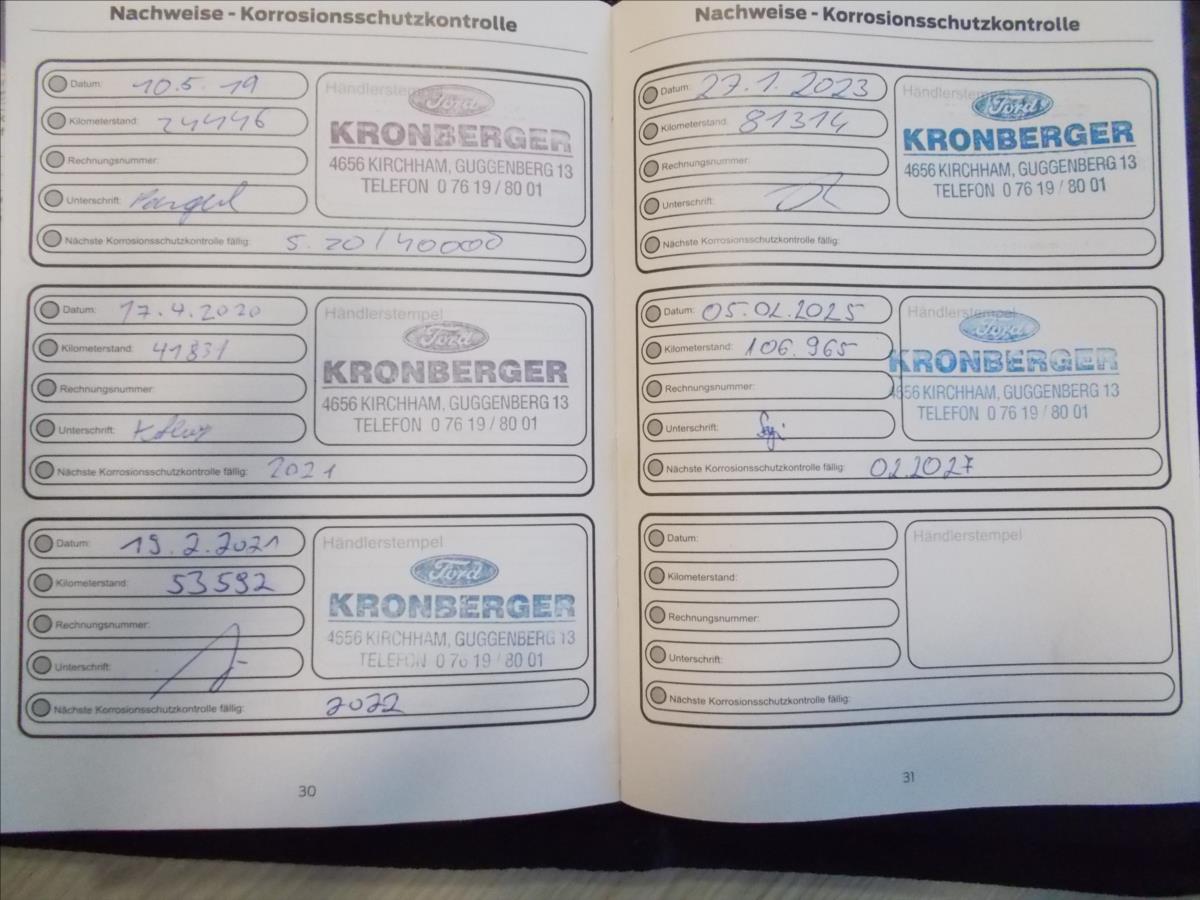 Nachweise - Korrosionsschutzkontrolle
Datum: 10.5.19
Kilometerstand: 24446
Rechnungsnummer:
Unterschrift:
Nächste Korrosionsschutzkontrolle fällig: 5.20/40000
Händlerstempel
Ford
KRONBERGER
4656 KIRCHHAM, GUGGENBERG 13
TELEFON 0 76 19 / 80 01
Datum: 17.4.2020
Kilometerstand: 41831
Rechnungsnummer:
Unterschrift:
Nächste Korrosionsschutzkontrolle fällig: 2021
Händlerstempel
Ford
KRONBERGER
4656 KIRCHHAM, GUGGENBERG 13
TELEFON 0 76 19 / 80 01
Datum: 19.2.2021
Kilometerstand: 53592
Rechnungsnummer:
Unterschrift:
Nächste Korrosionsschutzkontrolle fällig: 2022
Händlerstempel
Ford
KRONBERGER
4656 KIRCHHAM, GUGGENBERG 13
TELEFON 0 76 19 / 80 01
30
Nachweise - Korrosionsschutzkontrolle
Datum: 27.1.2023
Kilometerstand: 81314
Rechnungsnummer:
Unterschrift:
Nächste Korrosionsschutzkontrolle fällig:
Händlerstempel
Ford
KRONBERGER
4656 KIRCHHAM, GUGGENBERG 13
TELEFON 0 76 19 / 80 01
Datum: 05.02.2025
Kilometerstand: 106.965
Rechnungsnummer:
Unterschrift:
Nächste Korrosionsschutzkontrolle fällig: 02.2027
Händlerstempel
Ford
KRONBERGER
4656 KIRCHHAM, GUGGENBERG 13
TELEFON 0 76 19 / 80 01
Datum:
Kilometerstand:
Rechnungsnummer:
Unterschrift:
Nächste Korrosionsschutzkontrolle fällig:
Händlerstempel
31